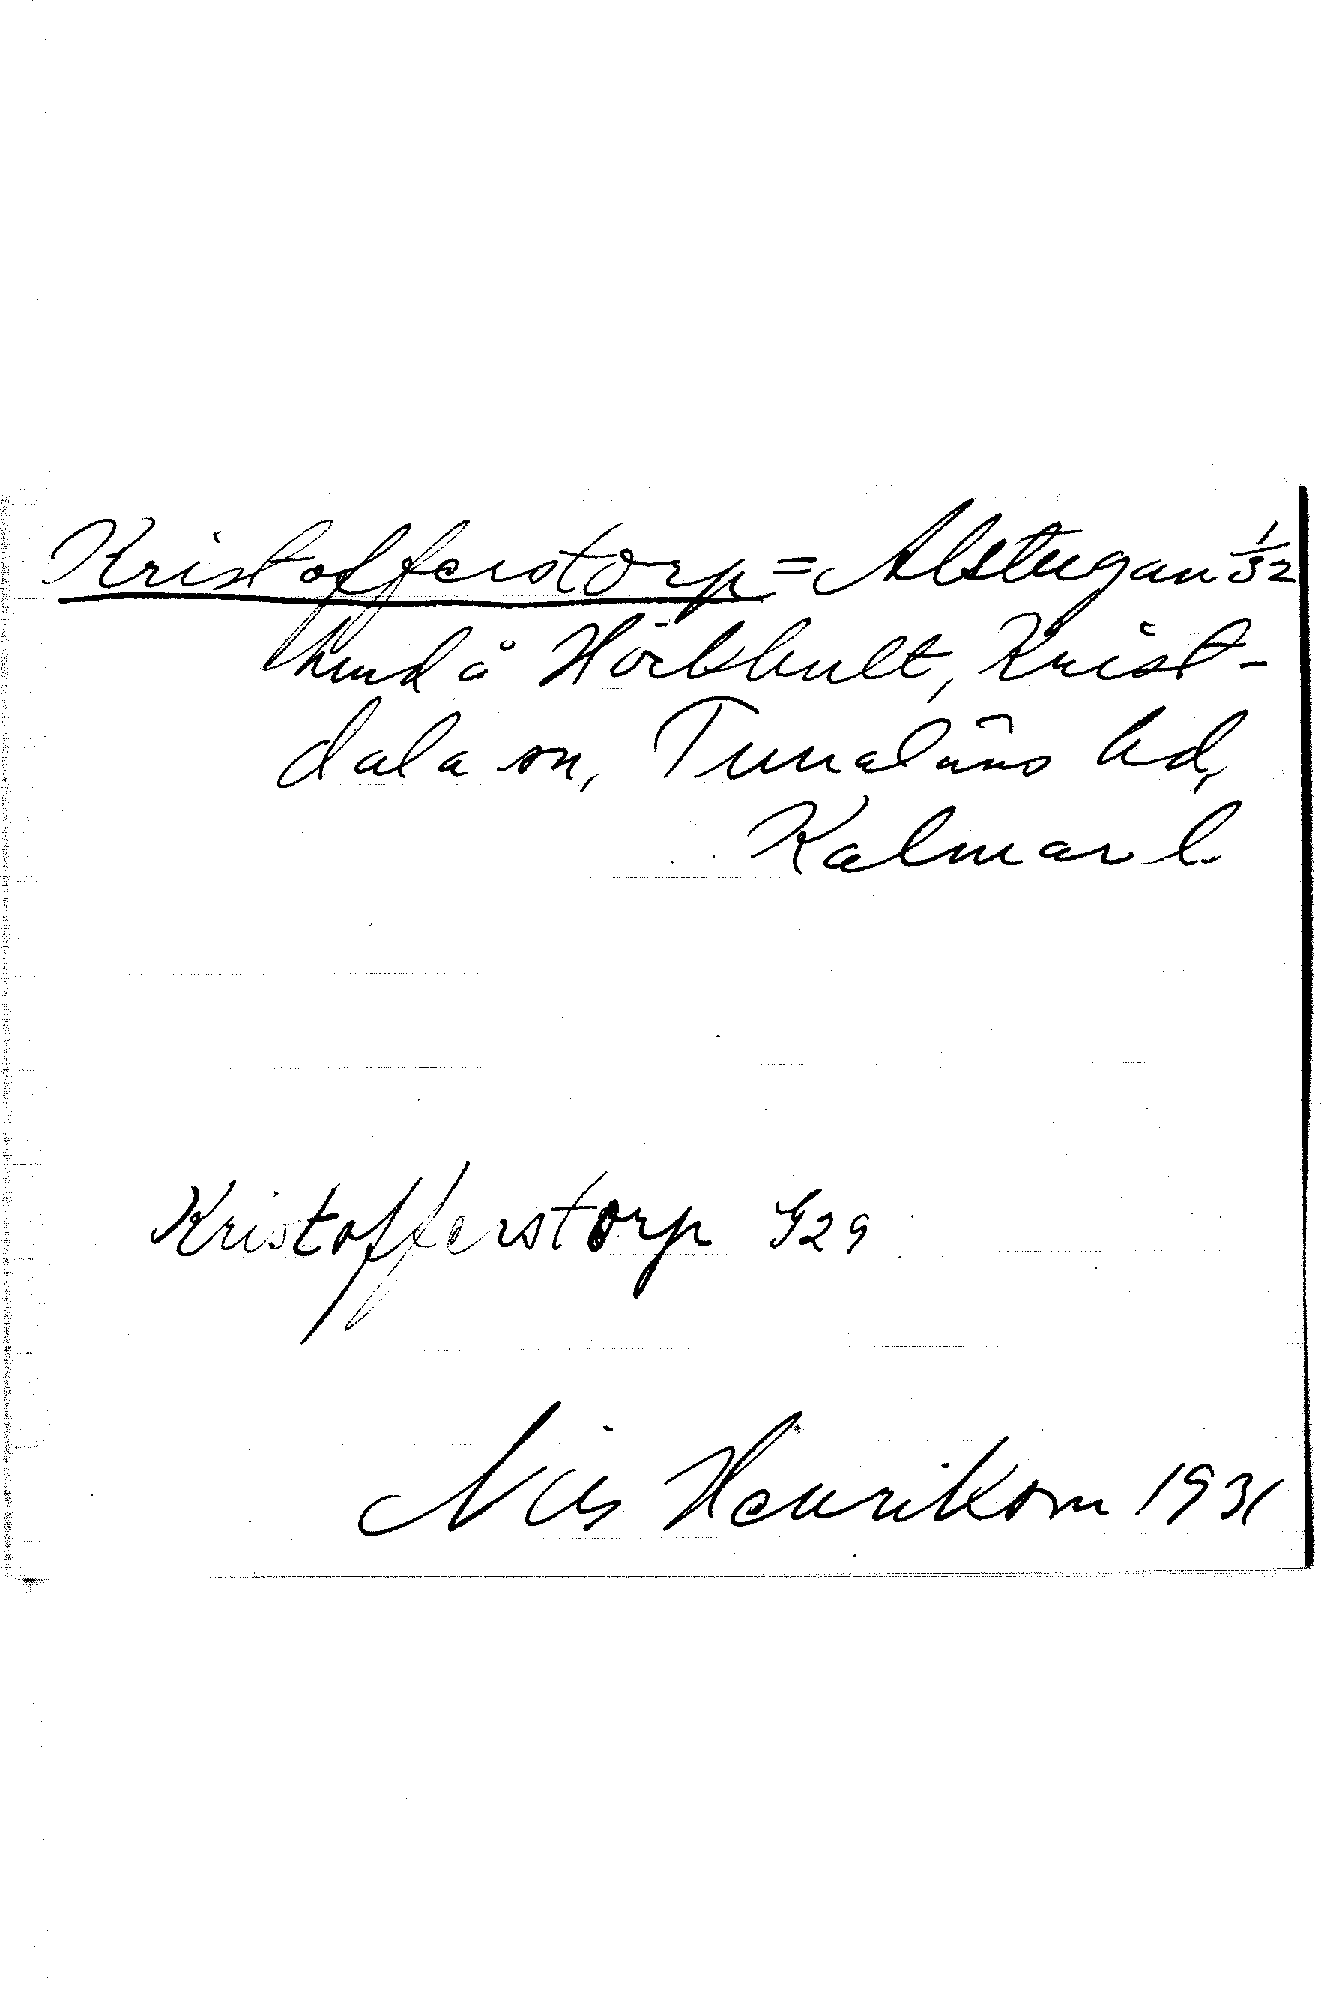 Kristofferstorp = Alstugan 1/32
hmd å Hörkhult, Krist-
dala sn, Tunaläns hd,
Kalmar l.
Kristofferstorp G29
Nils Henrikson 1931